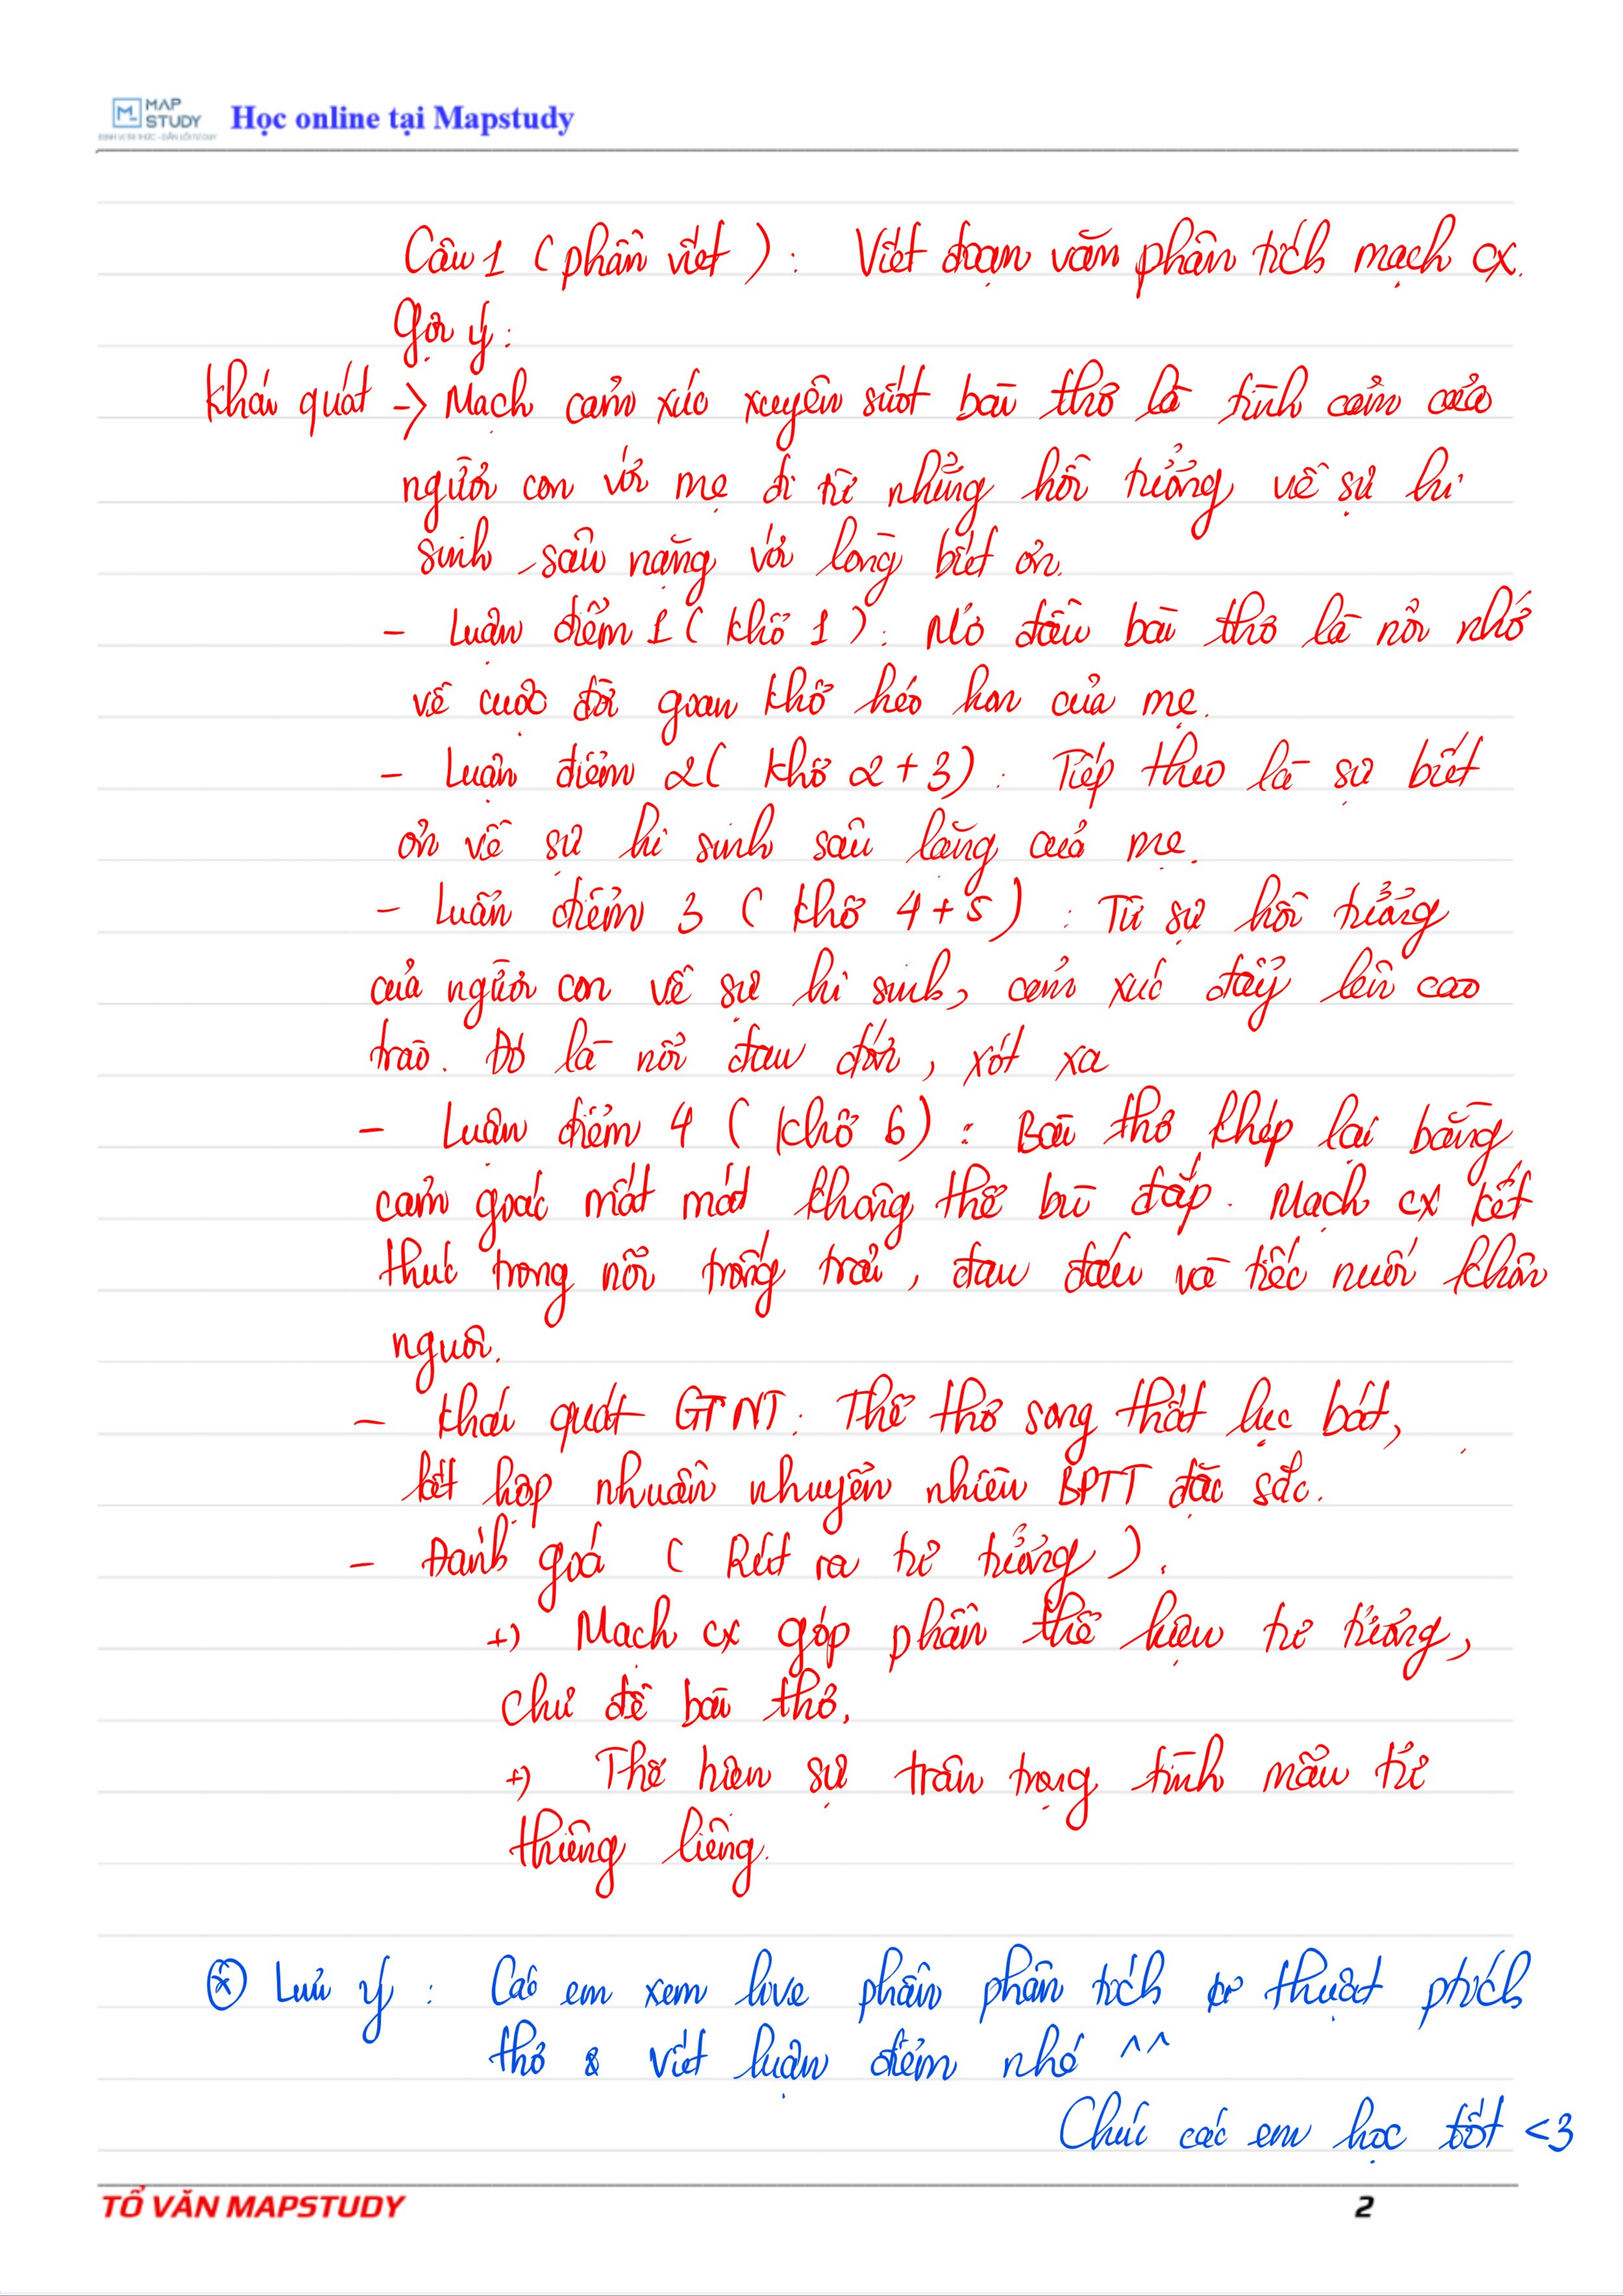 MAP
STUDY
ĐỊNH VỊ TRI THỨC - DẪN LỐI TƯ DUY
Học online tại Mapstudy
Câu 1 (phần viết): Viết đoạn văn phân tích mạch cx.
Gợi ý:
Khái quát -> Mạch cảm xúc xuyên suốt bài thơ là tình cảm của
người con với mẹ đi từ những hồi tưởng về sự hi
sinh, sâu nặng với lòng biết ơn.
- Luận điểm 1 (khổ 1): Mở đầu bài thơ là nỗi nhớ
về cuộc đời gian khổ héo hon của mẹ.
- Luận điểm 2 (khổ 2+3): Tiếp theo là sự biết
ơn về sự hi sinh sâu lắng của mẹ.
- Luận điểm 3 (khổ 4+5): Từ sự hồi tưởng
của người con về sự hi sinh, cảm xúc đẩy lên cao
trào. Đó là nỗi đau đớn, xót xa
- Luận điểm 4 (khổ 6): Bài thơ khép lại bằng
cảm giác mất mát không thể bù đắp. Mạch cx kết
thúc trong nỗi trống trải, đau đáu và tiếc nuối khôn
nguôi.
- Khái quát GTNT: Thể thơ song thất lục bát,
kết hợp nhuần nhuyễn nhiều BPTT đặc sắc.
- Đánh giá (Rút ra tư tưởng).
+) Mạch cx góp phần thể hiện tư tưởng,
chủ đề bài thơ.
+) Thể hiện sự trân trọng tình mẫu tử
thiêng liêng.
* Lưu ý: Các em xem live phần phân tích thuật ptích
thơ & viết luận điểm nhé ^^
Chúc các em học tốt <3
TỔ VĂN MAPSTUDY
2